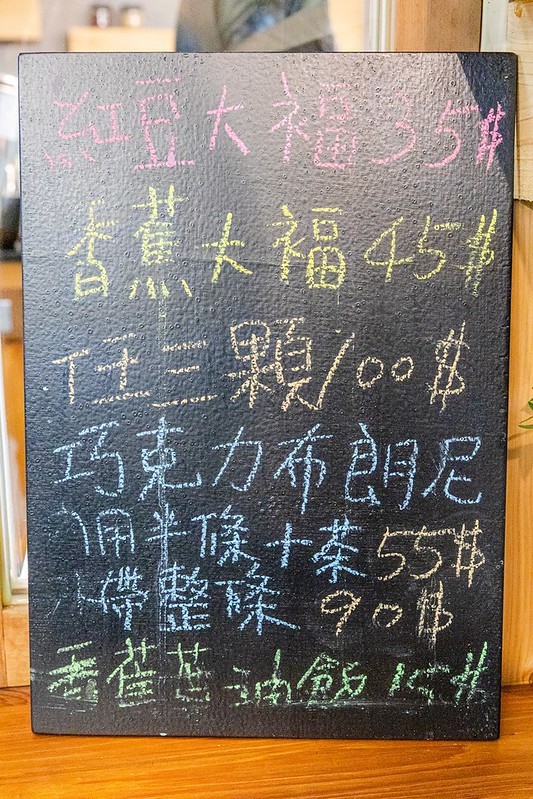 紅豆大福35$
香蕉大福45$
任三顆100$
巧克力布朗尼
內用半條+茶 55$
外帶整條 90$
香蕉 油飯 15$